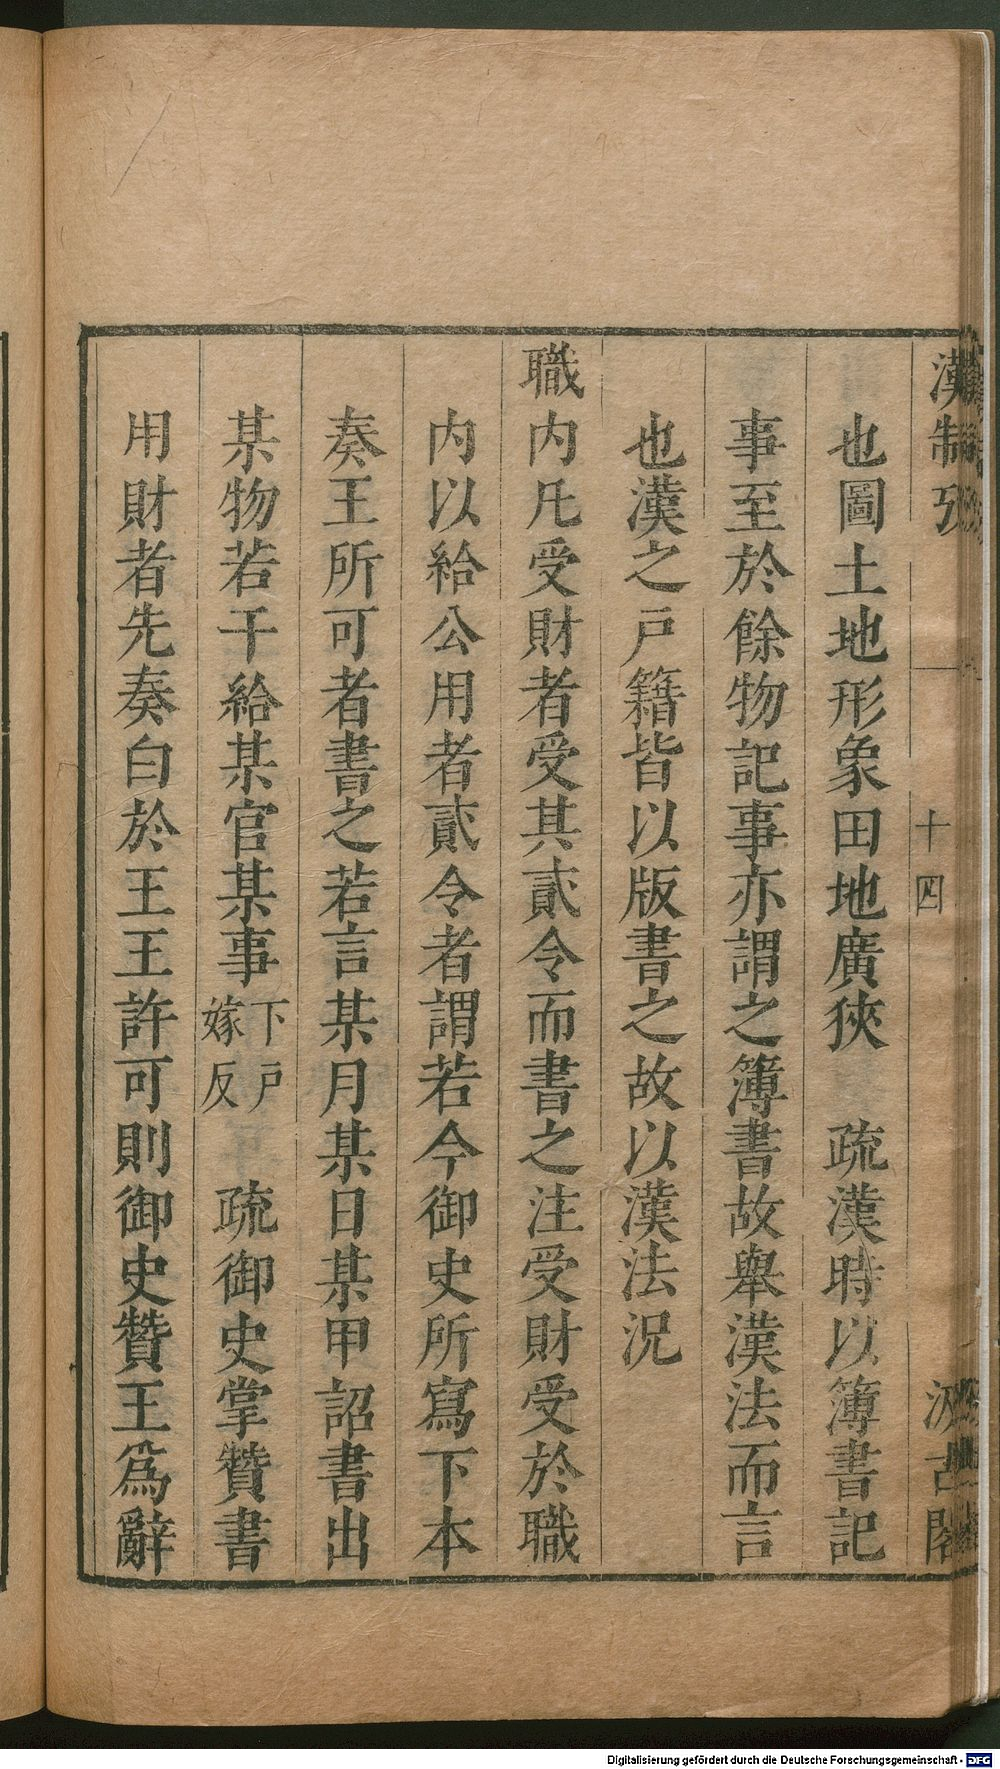 漢制攷
十四
汲古閣
也圖土地形象田地廣狹　疏漢時以簿書記
事至於餘物記事亦謂之簿書故舉漢法而言
也漢之戶籍皆以版書之故以漢法況
職內凡受財者受其貳令而書之注受財受於職
內以給公用者貳令者謂若今御史所寫下本
奏王所可者書之若言某月某日某甲詔書出
某物若干給某官某事下戶嫁反　疏御史掌贊書
用財者先奏白於王王許可則御史贊王爲辭
Digitalisierung gefördert durch die Deutsche Forschungsgemeinschaft - DFG